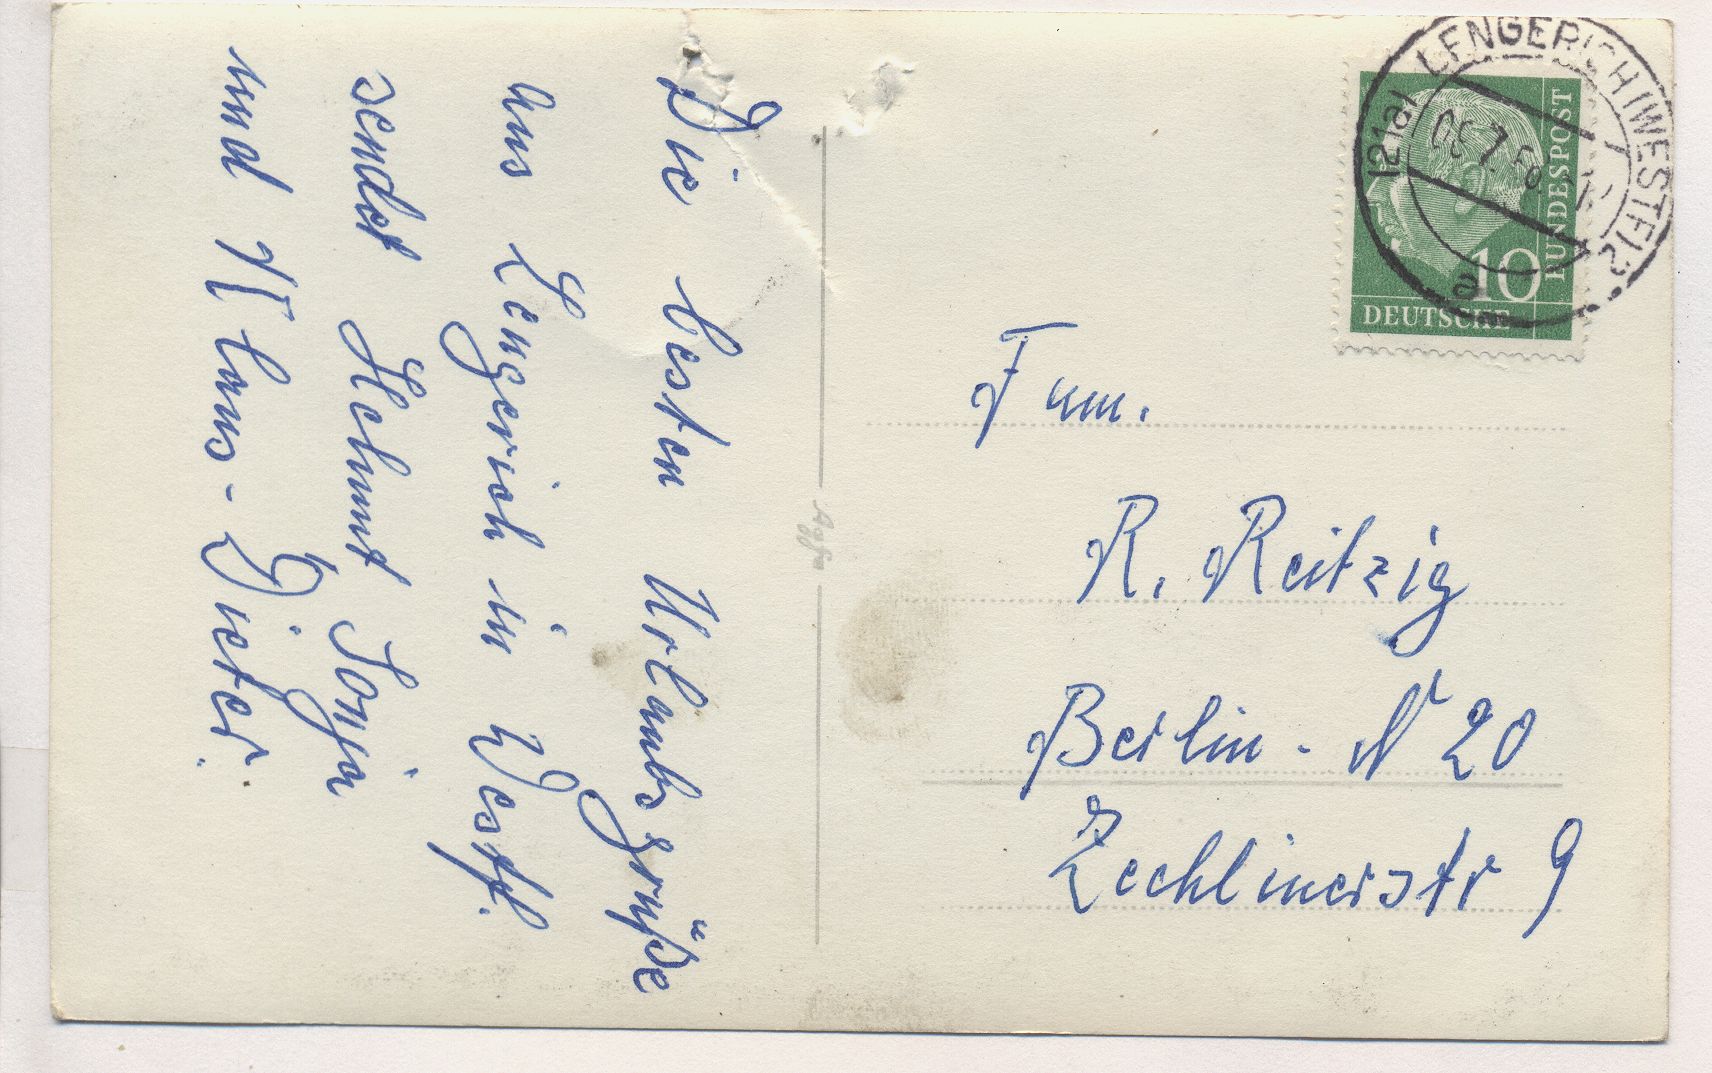 Die besten Urlaubsgrüße
aus Lengerich in Westf.
sendet Helmut Sonja
und Klaus-Dieter.
Agfa
Fam.
R. Reitzig
Berlin - N 20
Zechlinerstr 9
LENGERICH (WESTF) 2
(21a)
a
10
DEUTSCHE
BUNDESPOST